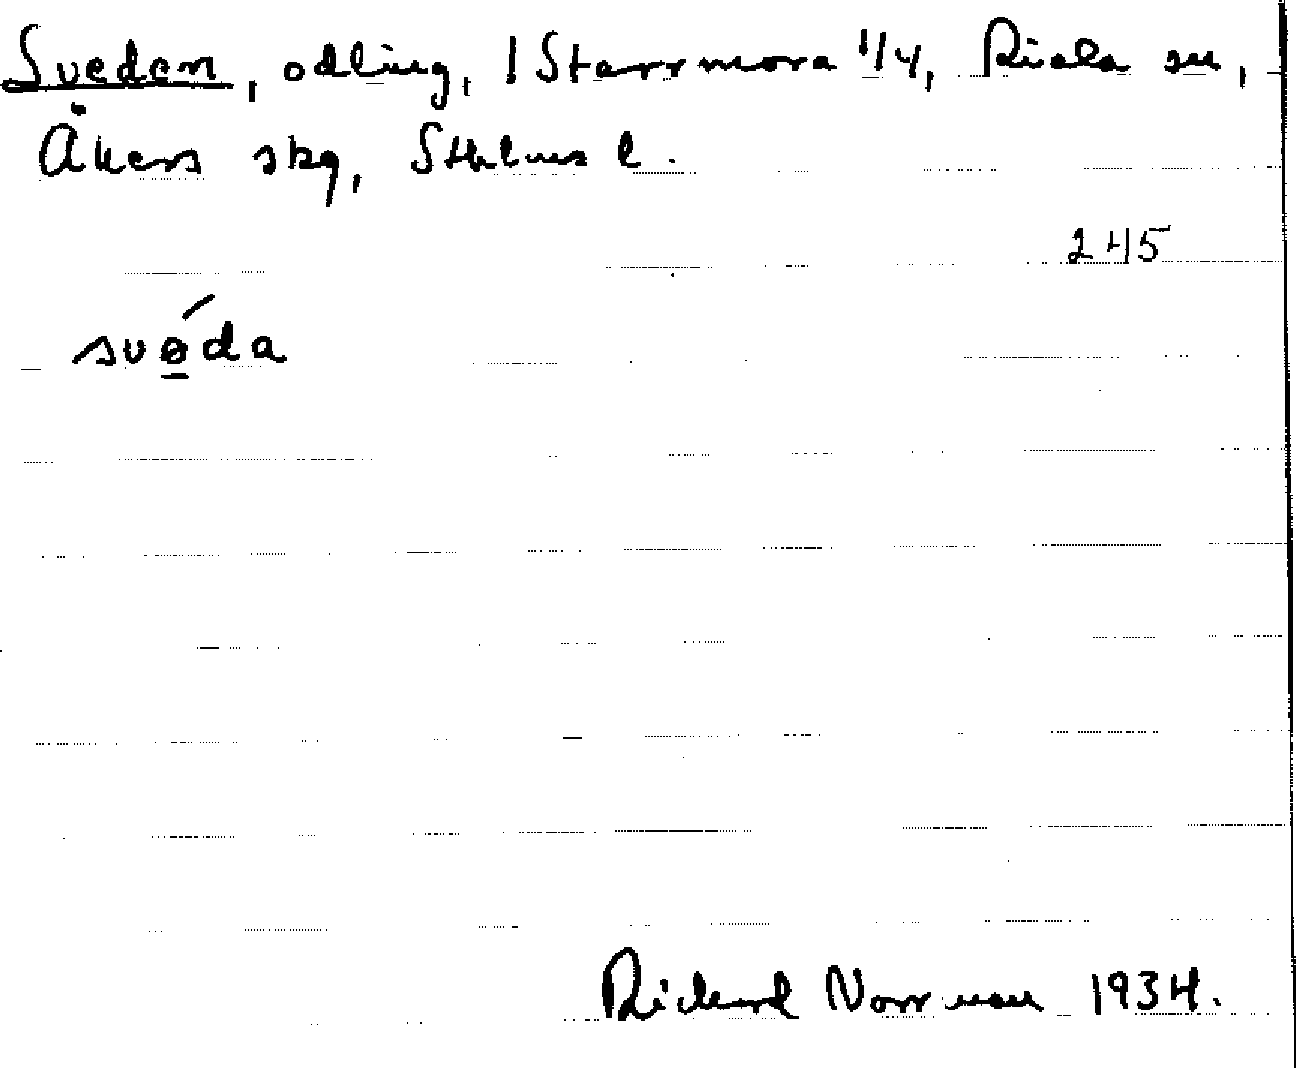 Sveden, odling, 1 Starrmora 1/4, Riala sn,
Åkers skg, Sthlms l.
245
svǝ́da
Richard Norrman 1934.